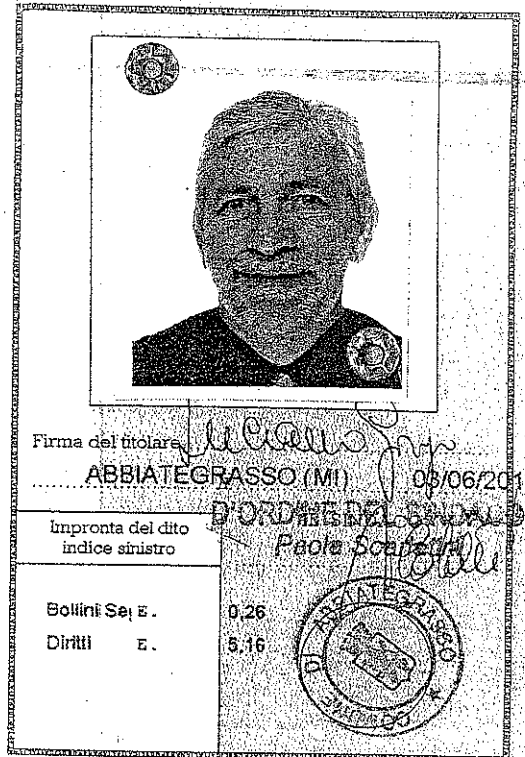 Firma del titolare Luciano
ABBIATEGRASSO (MI) 03/06/201
D'ORDINE DEL SINDACO
IL SINDACO
Impronta del dito
indice sinistro
Paola
Bollini Se E. 0,26
Diritti E. 5,16
COMUNE DI ABBIATEGRASSO